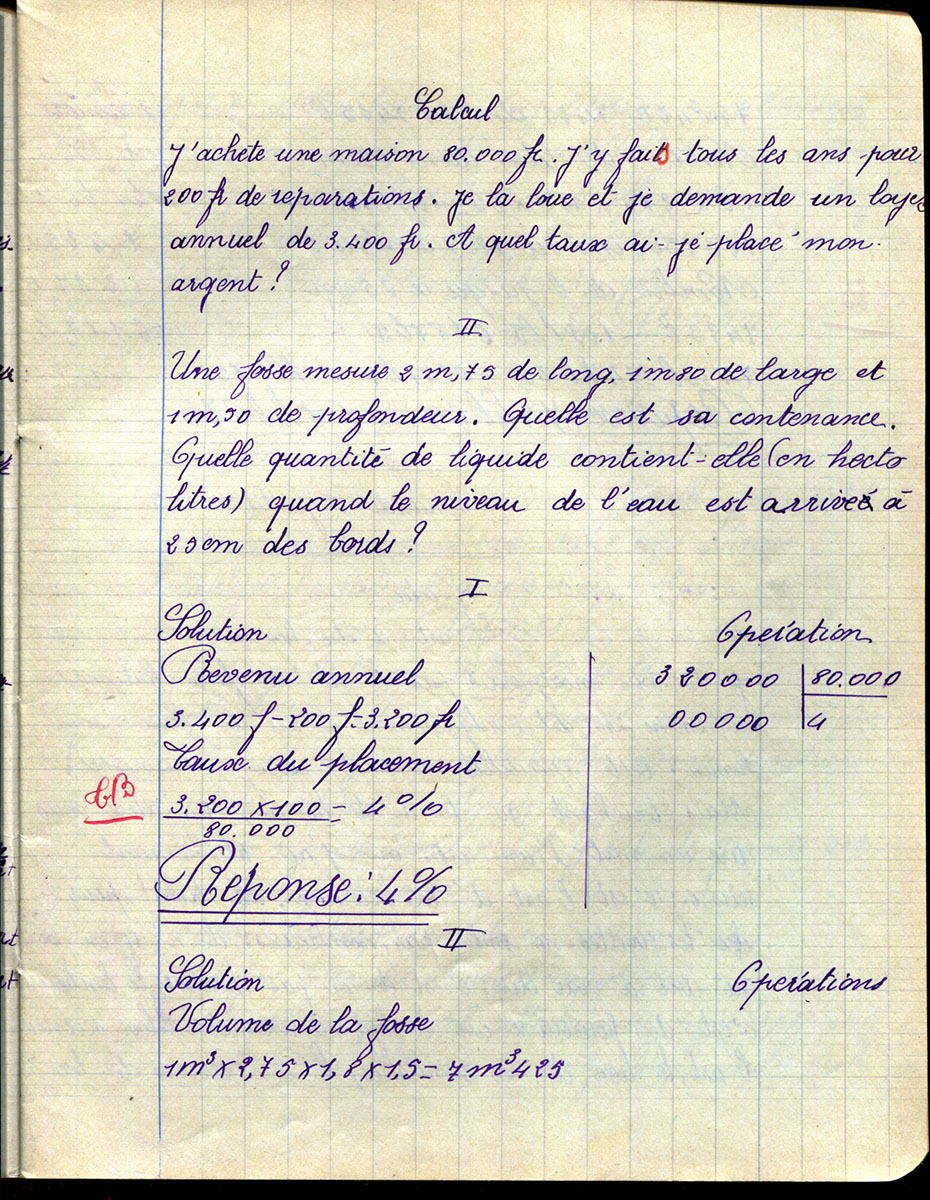 Calcul
J'achète une maison 80.000 fr. J'y fais tous les ans pour
200 fr de réparations. Je la loue et je demande un loyer
annuel de 3.400 fr. A quel taux ai-je placé mon
argent?
II
Une fosse mesure 2 m,75 de long, 1m80 de large et
1m,50 de profondeur. Quelle est sa contenance.
Quelle quantité de liquide contient-elle (en hecto
litres) quand le niveau de l'eau est arrivé à
25cm des bords?
I
Solution Opération
Revenu annuel 320000 80.000
3.400 f-200 f=3.200 fr 00000 4
Taux du placement
TB
3.200 x 100 = 4%
80.000
Réponse: 4%
II
Solution Opérations
Volume de la fosse
1m³ x 2,75 x 1,8 x 1,5 = 7m³425